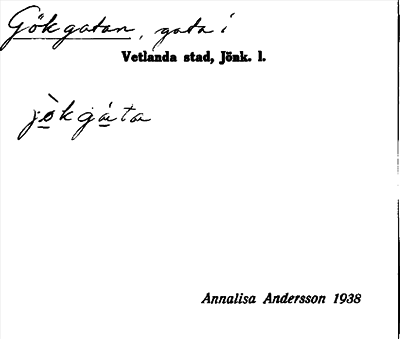 Gökgatan, gata i
Vetlanda stad, Jönk. l.
jo̱̊̀kgǻ̱ta
Annalisa Andersson 1938